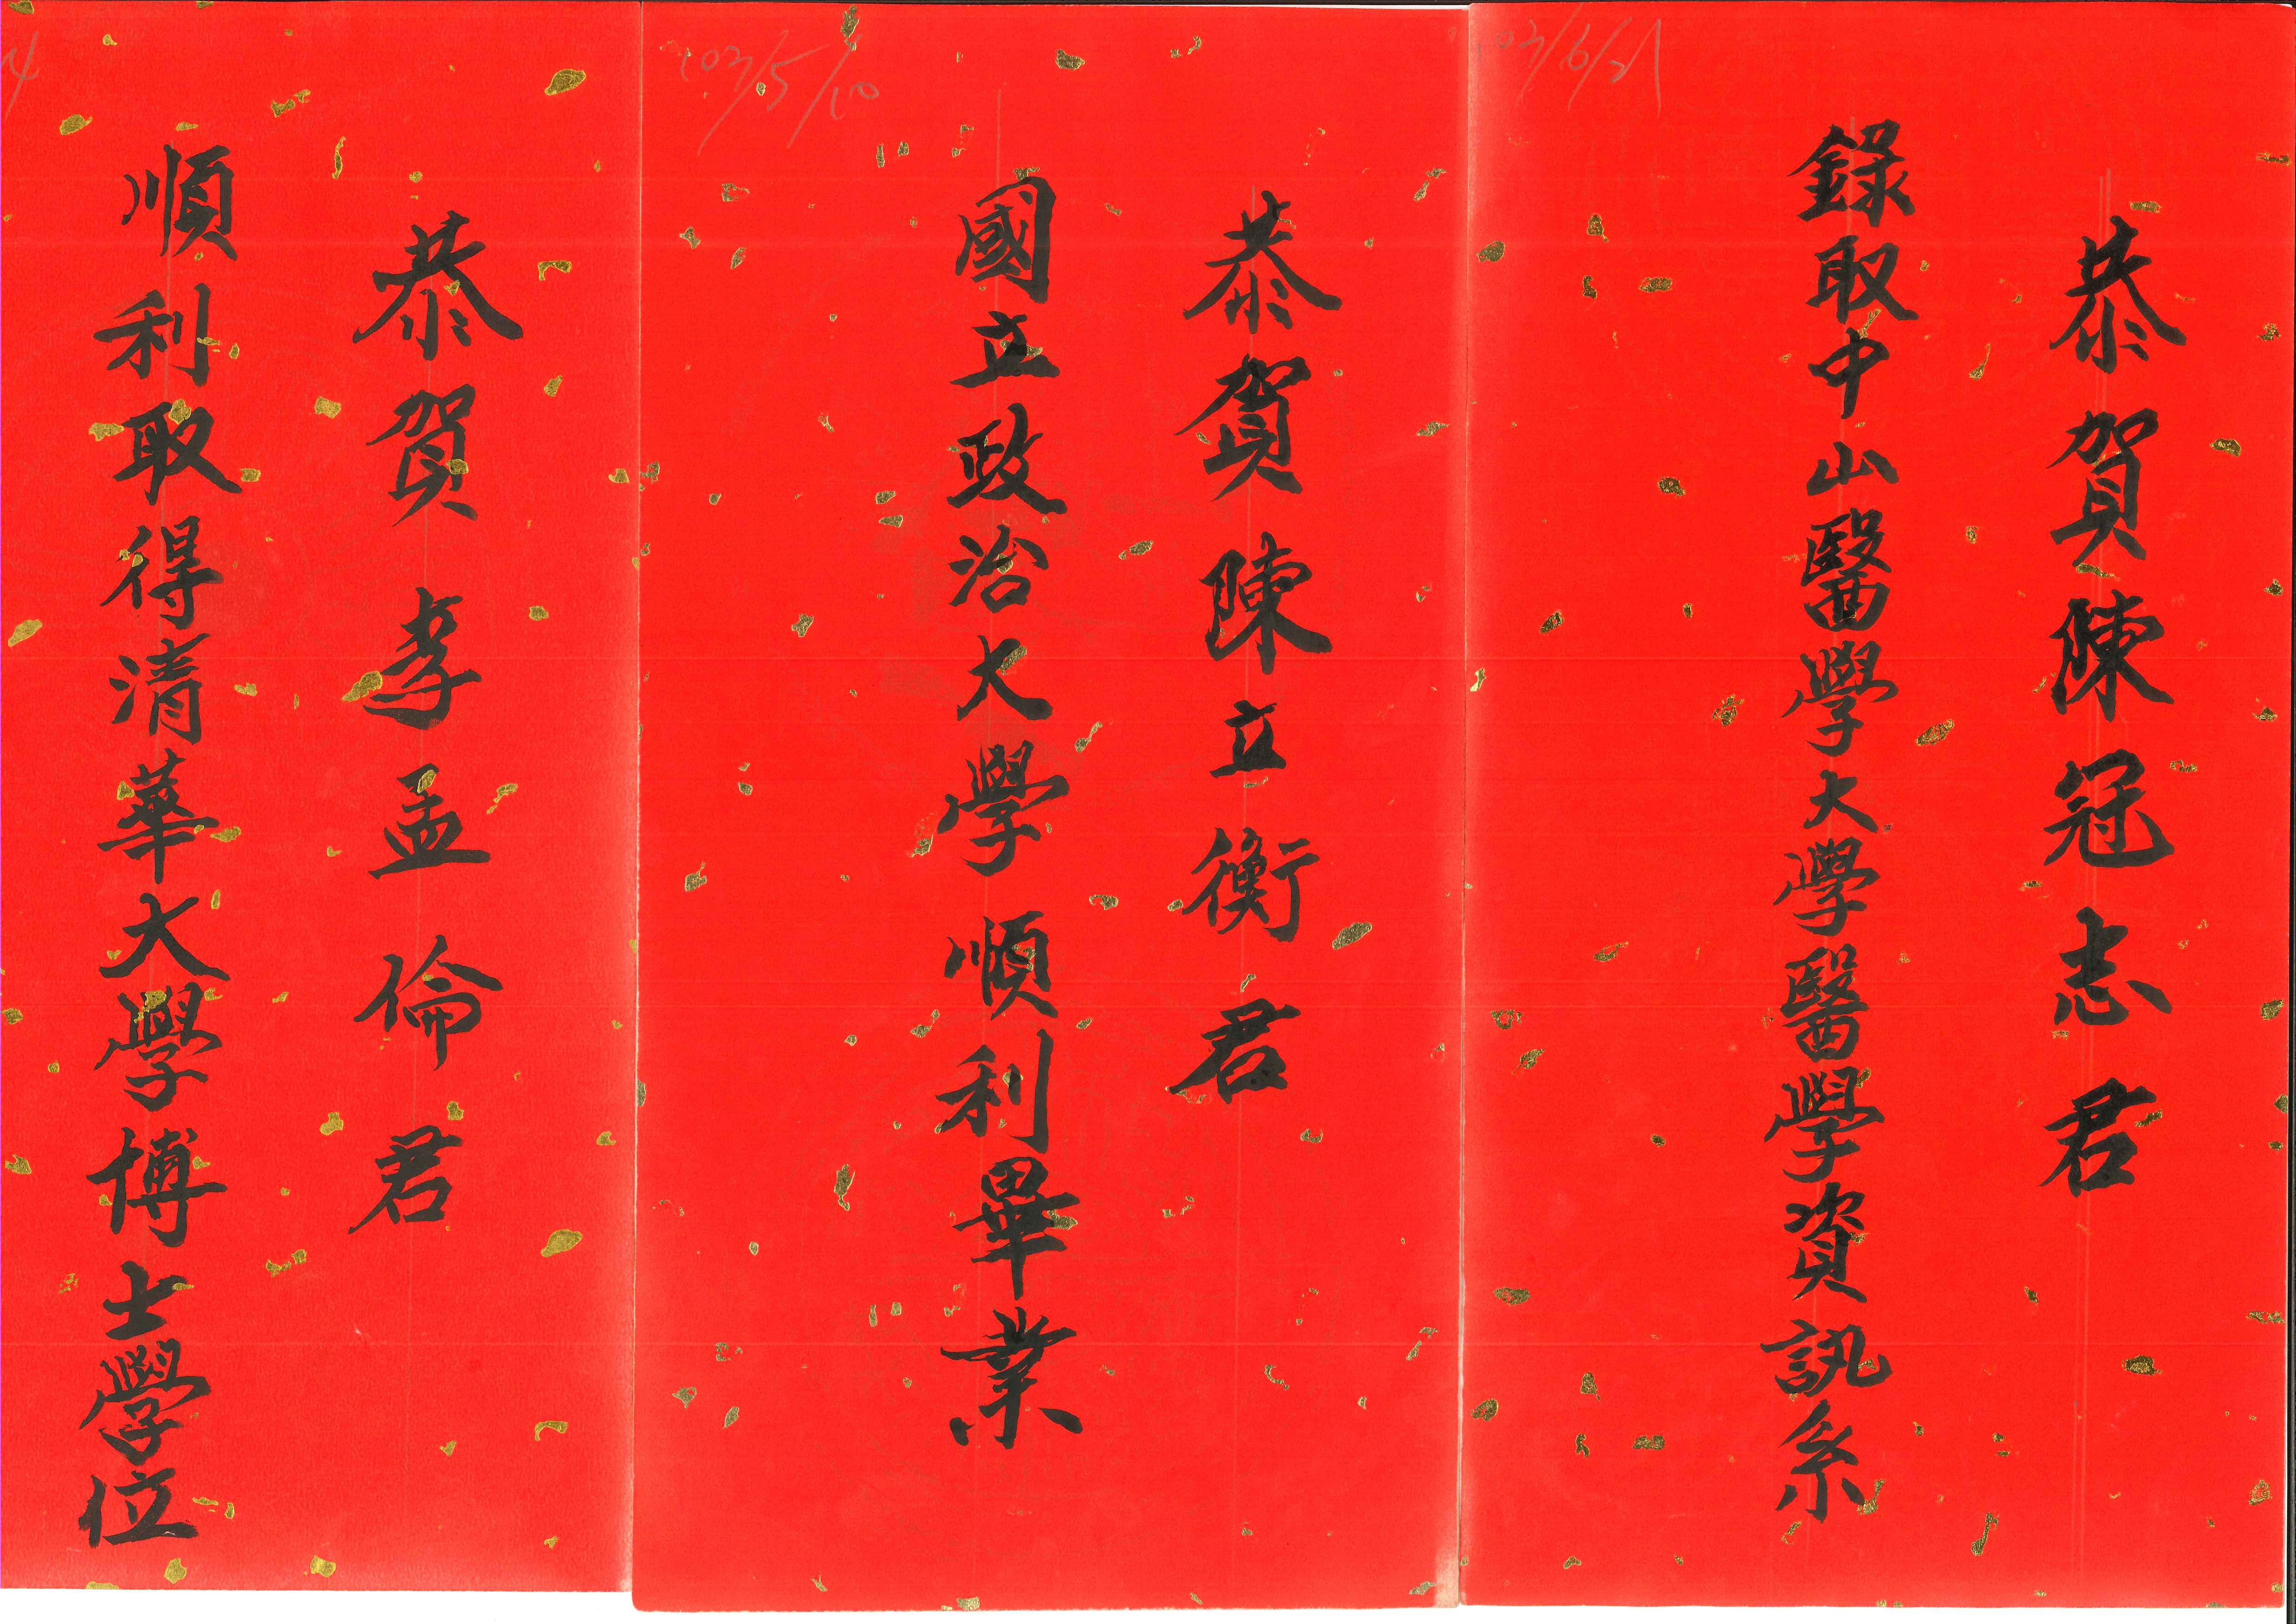 03/6/21
恭賀陳冠志君
錄取中山醫學大學醫學資訊系
103/5/10
恭賀陳立衡君
國立政治大學順利畢業
4
恭賀李孟倫君
順利取得清華大學博士學位